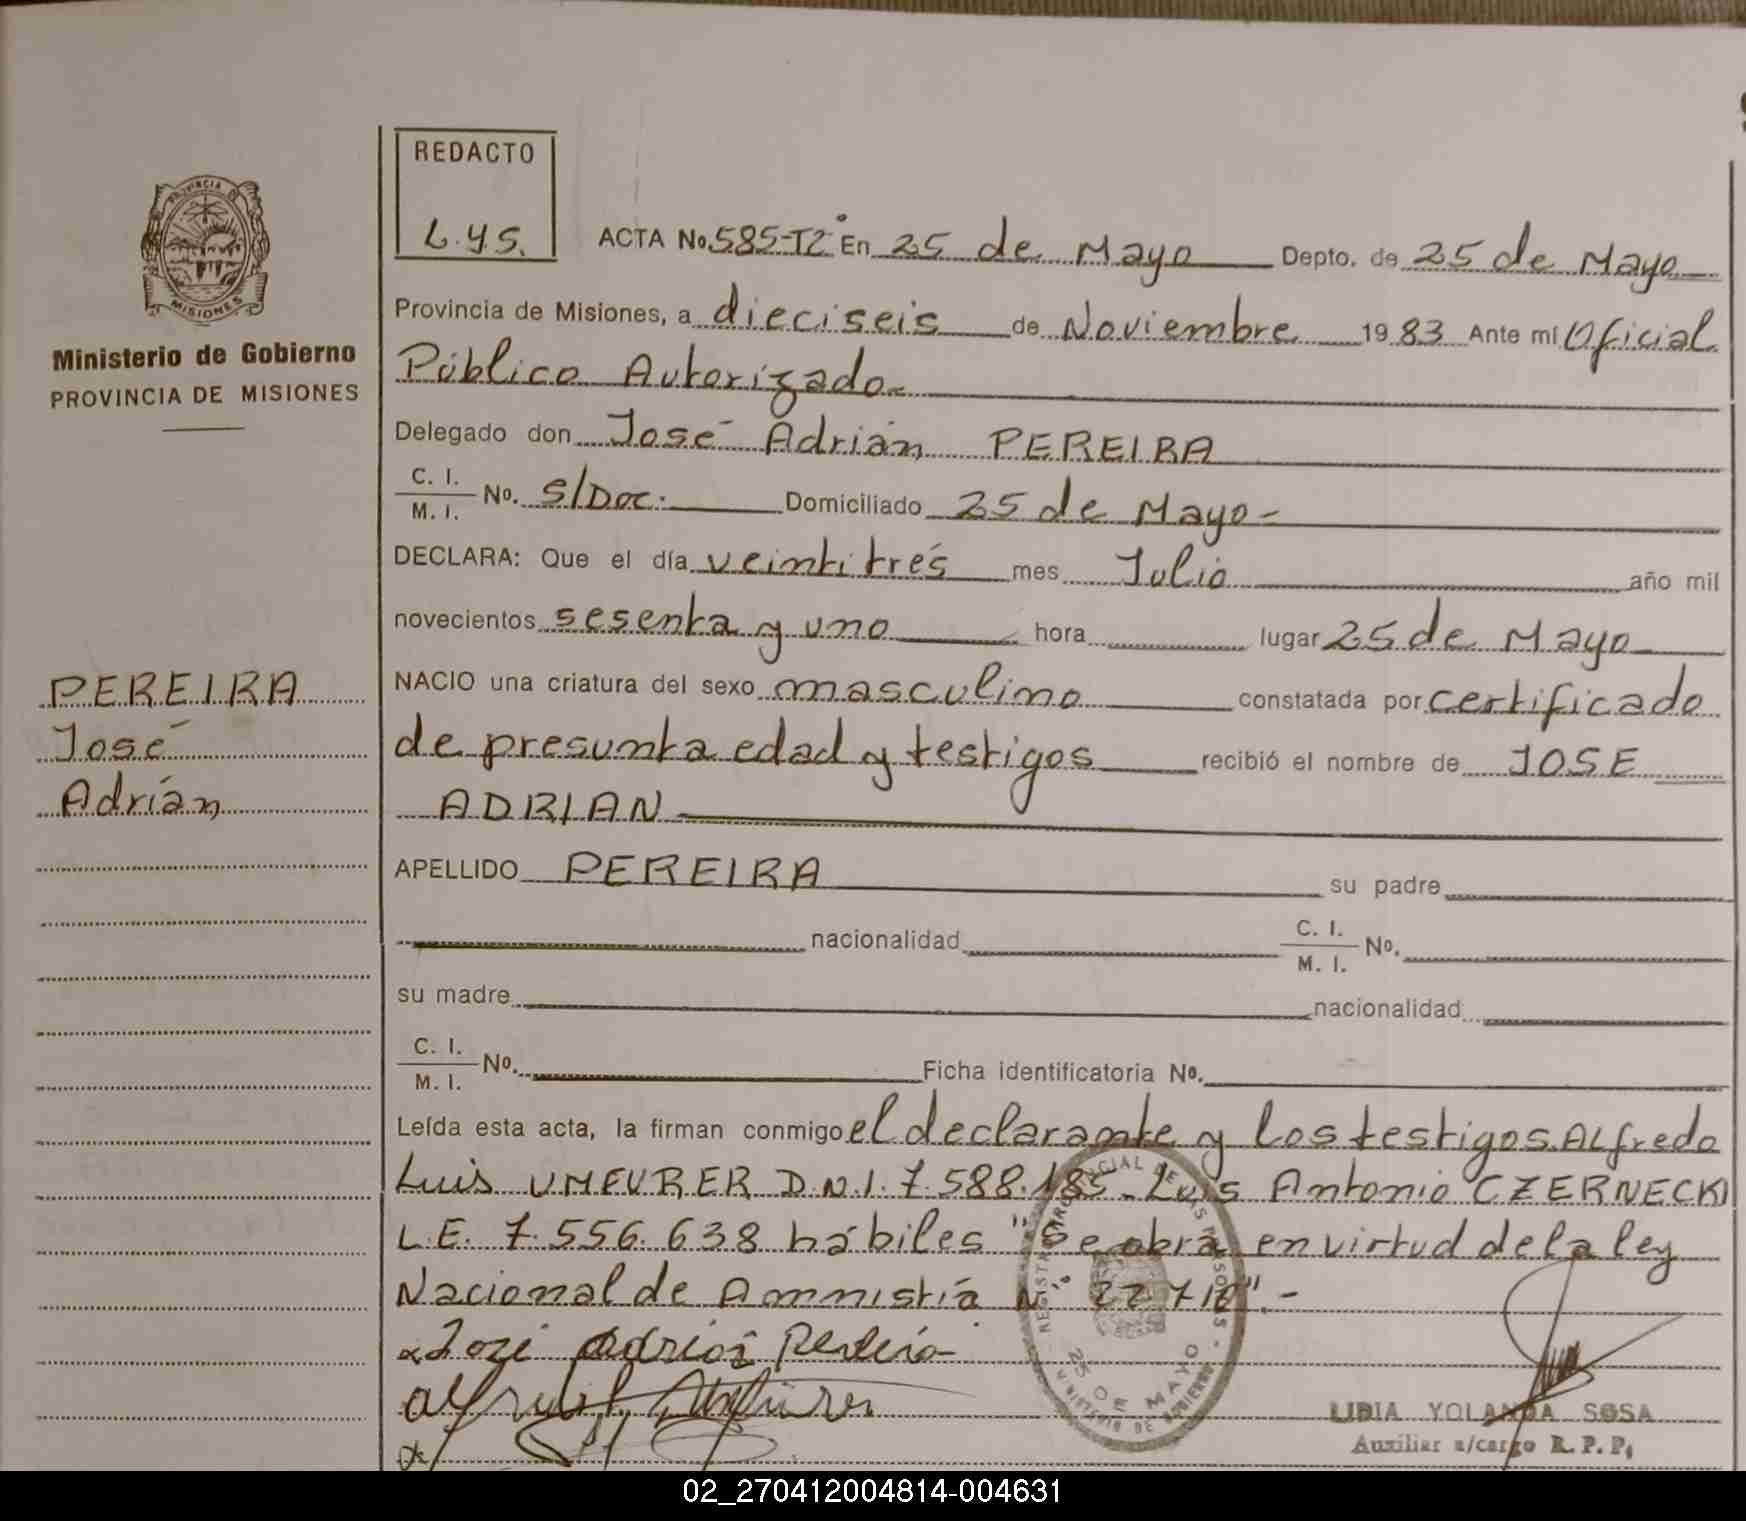 REDACTO
L.y.S.
PROVINCIA DE
MISIONES
Ministerio de Gobierno
PROVINCIA DE MISIONES
ACTA No. 585-T2° En 25 de Mayo Depto. de 25 de Mayo
Provincia de Misiones, a dieciseis de Noviembre 1983 Ante mí Oficial
Público Autorizado.-
Delegado don José Adrián PEREIRA
C. I.
M. I. No. S/Doc. Domiciliado 25 de Mayo-
DECLARA: Que el día veintitrés mes Julio año mil
novecientos sesenta y uno hora lugar 25 de Mayo
PEREIRA
José
Adrián
NACIO una criatura del sexo masculino constatada por certificado
de presunta edad y testigos recibió el nombre de JOSE
ADRIAN
APELLIDO PEREIRA su padre
nacionalidad C. I.
M. I. No.
su madre nacionalidad
C. I.
M. I. No. Ficha identificatoria No.
Leída esta acta, la firman conmigo el declarante y los testigos Alfredo
Luis UMFURER D.N.I. 7.588.185. Luis Antonio CZERNECKI
L.E. 7.556.638 hábiles "Se obra en virtud de la ley
Nacional de Amnistía N° 22.710".-
José Adrián Pereira
LIDIA YOLANDA SOSA
Auxiliar a/cargo R. P. P.
25 DE MAYO
MINISTERIO DE GOBIERNO
02_270412004814-004631